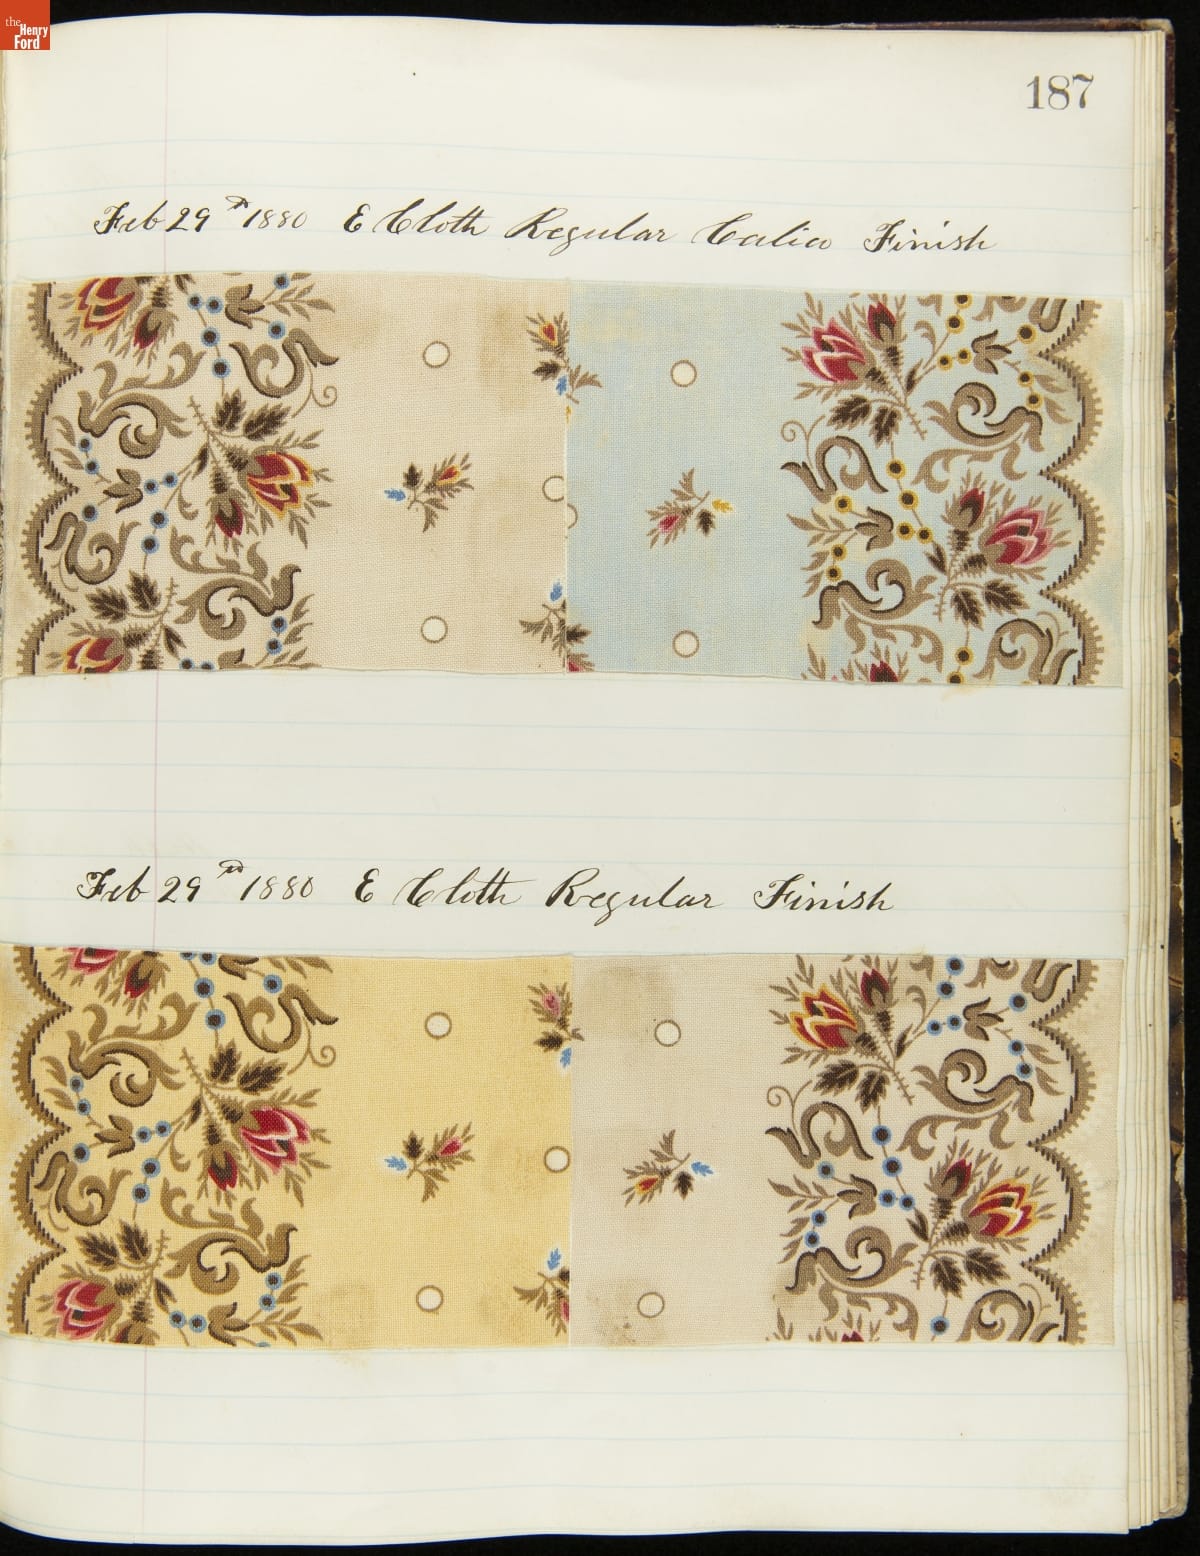 the
Henry
Ford
187
Feb 29th 1880 E Cloth Regular Calico Finish
Feb 29th 1880 E Cloth Regular Finish